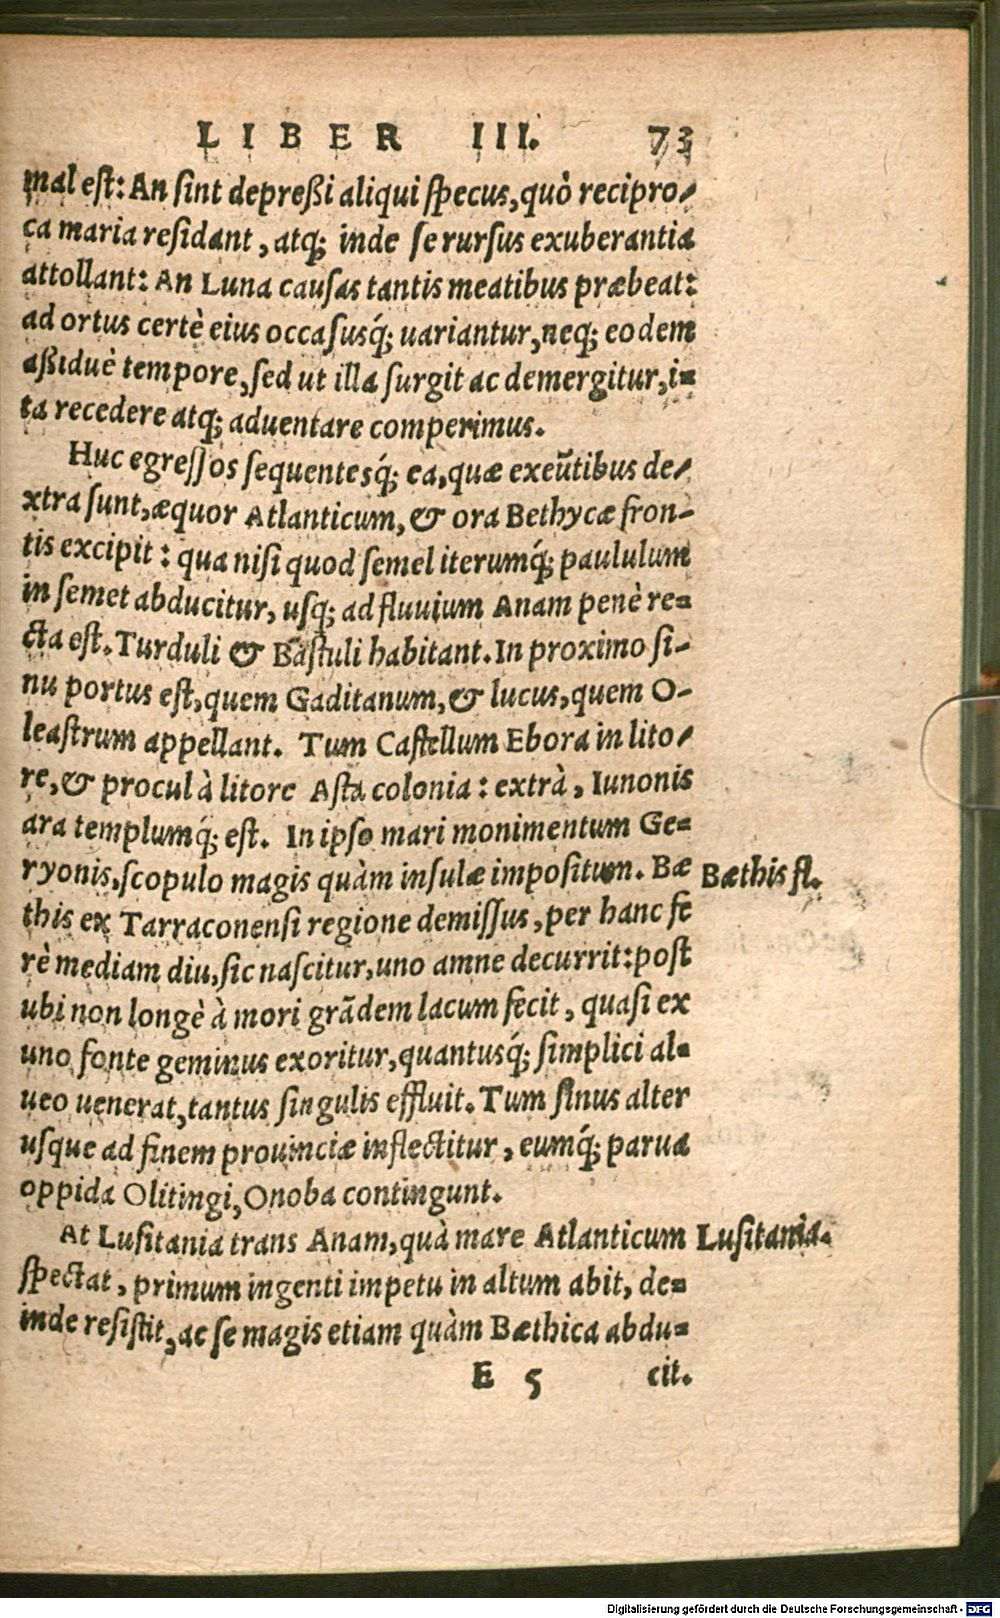 LIBER III. 73
mal est: An sint depreßi aliqui specus, quò recipro-
ca maria residant, atq; inde se rursus exuberantia
attollant: An Luna causas tantis meatibus præbeat:
ad ortus certè eius occasusq́; uariantur, neq; eodem
aßiduè tempore, sed ut illa surgit ac demergitur, i-
ta recedere atq; aduentare comperimus.
Huc egressos sequentesq́; ea, quæ exeũtibus de-
xtra sunt, æquor Atlanticum, & ora Bethycæ fron-
tis excipit: qua nisi quod semel iterumq́; paululum
in semet abducitur, usq; ad fluuium Anam penè re-
cta est. Turduli & Bastuli habitant. In proximo si-
nu portus est, quem Gaditanum, & lucus, quem O-
leastrum appellant. Tum Castellum Ebora in lito-
re, & procul à litore Asta colonia: extrà, Iunonis
ara templumq́; est. In ipso mari monimentum Ge-
ryonis, scopulo magis quàm insulæ impositum. Bæ
Bæthis fl.
this ex Tarraconensi regione demissus, per hanc fe
rè mediam diu, sic nascitur, uno amne decurrit: post
ubi non longè à mori grãdem lacum fecit, quasi ex
uno fonte geminus exoritur, quantusq́; simplici al-
ueo uenerat, tantus singulis effluit. Tum sinus alter
usque ad finem prouinciæ inflectitur, eumq́; parua
oppida Olitingi, Onoba contingunt.
At Lusitania trans Anam, quà mare Atlanticum
Lusitania.
spectat, primum ingenti impetu in altum abit, de-
inde resistit, ac se magis etiam quàm Bæthica abdu-
E 5 cit.
Digitalisierung gefördert durch die Deutsche Forschungsgemeinschaft - DFG